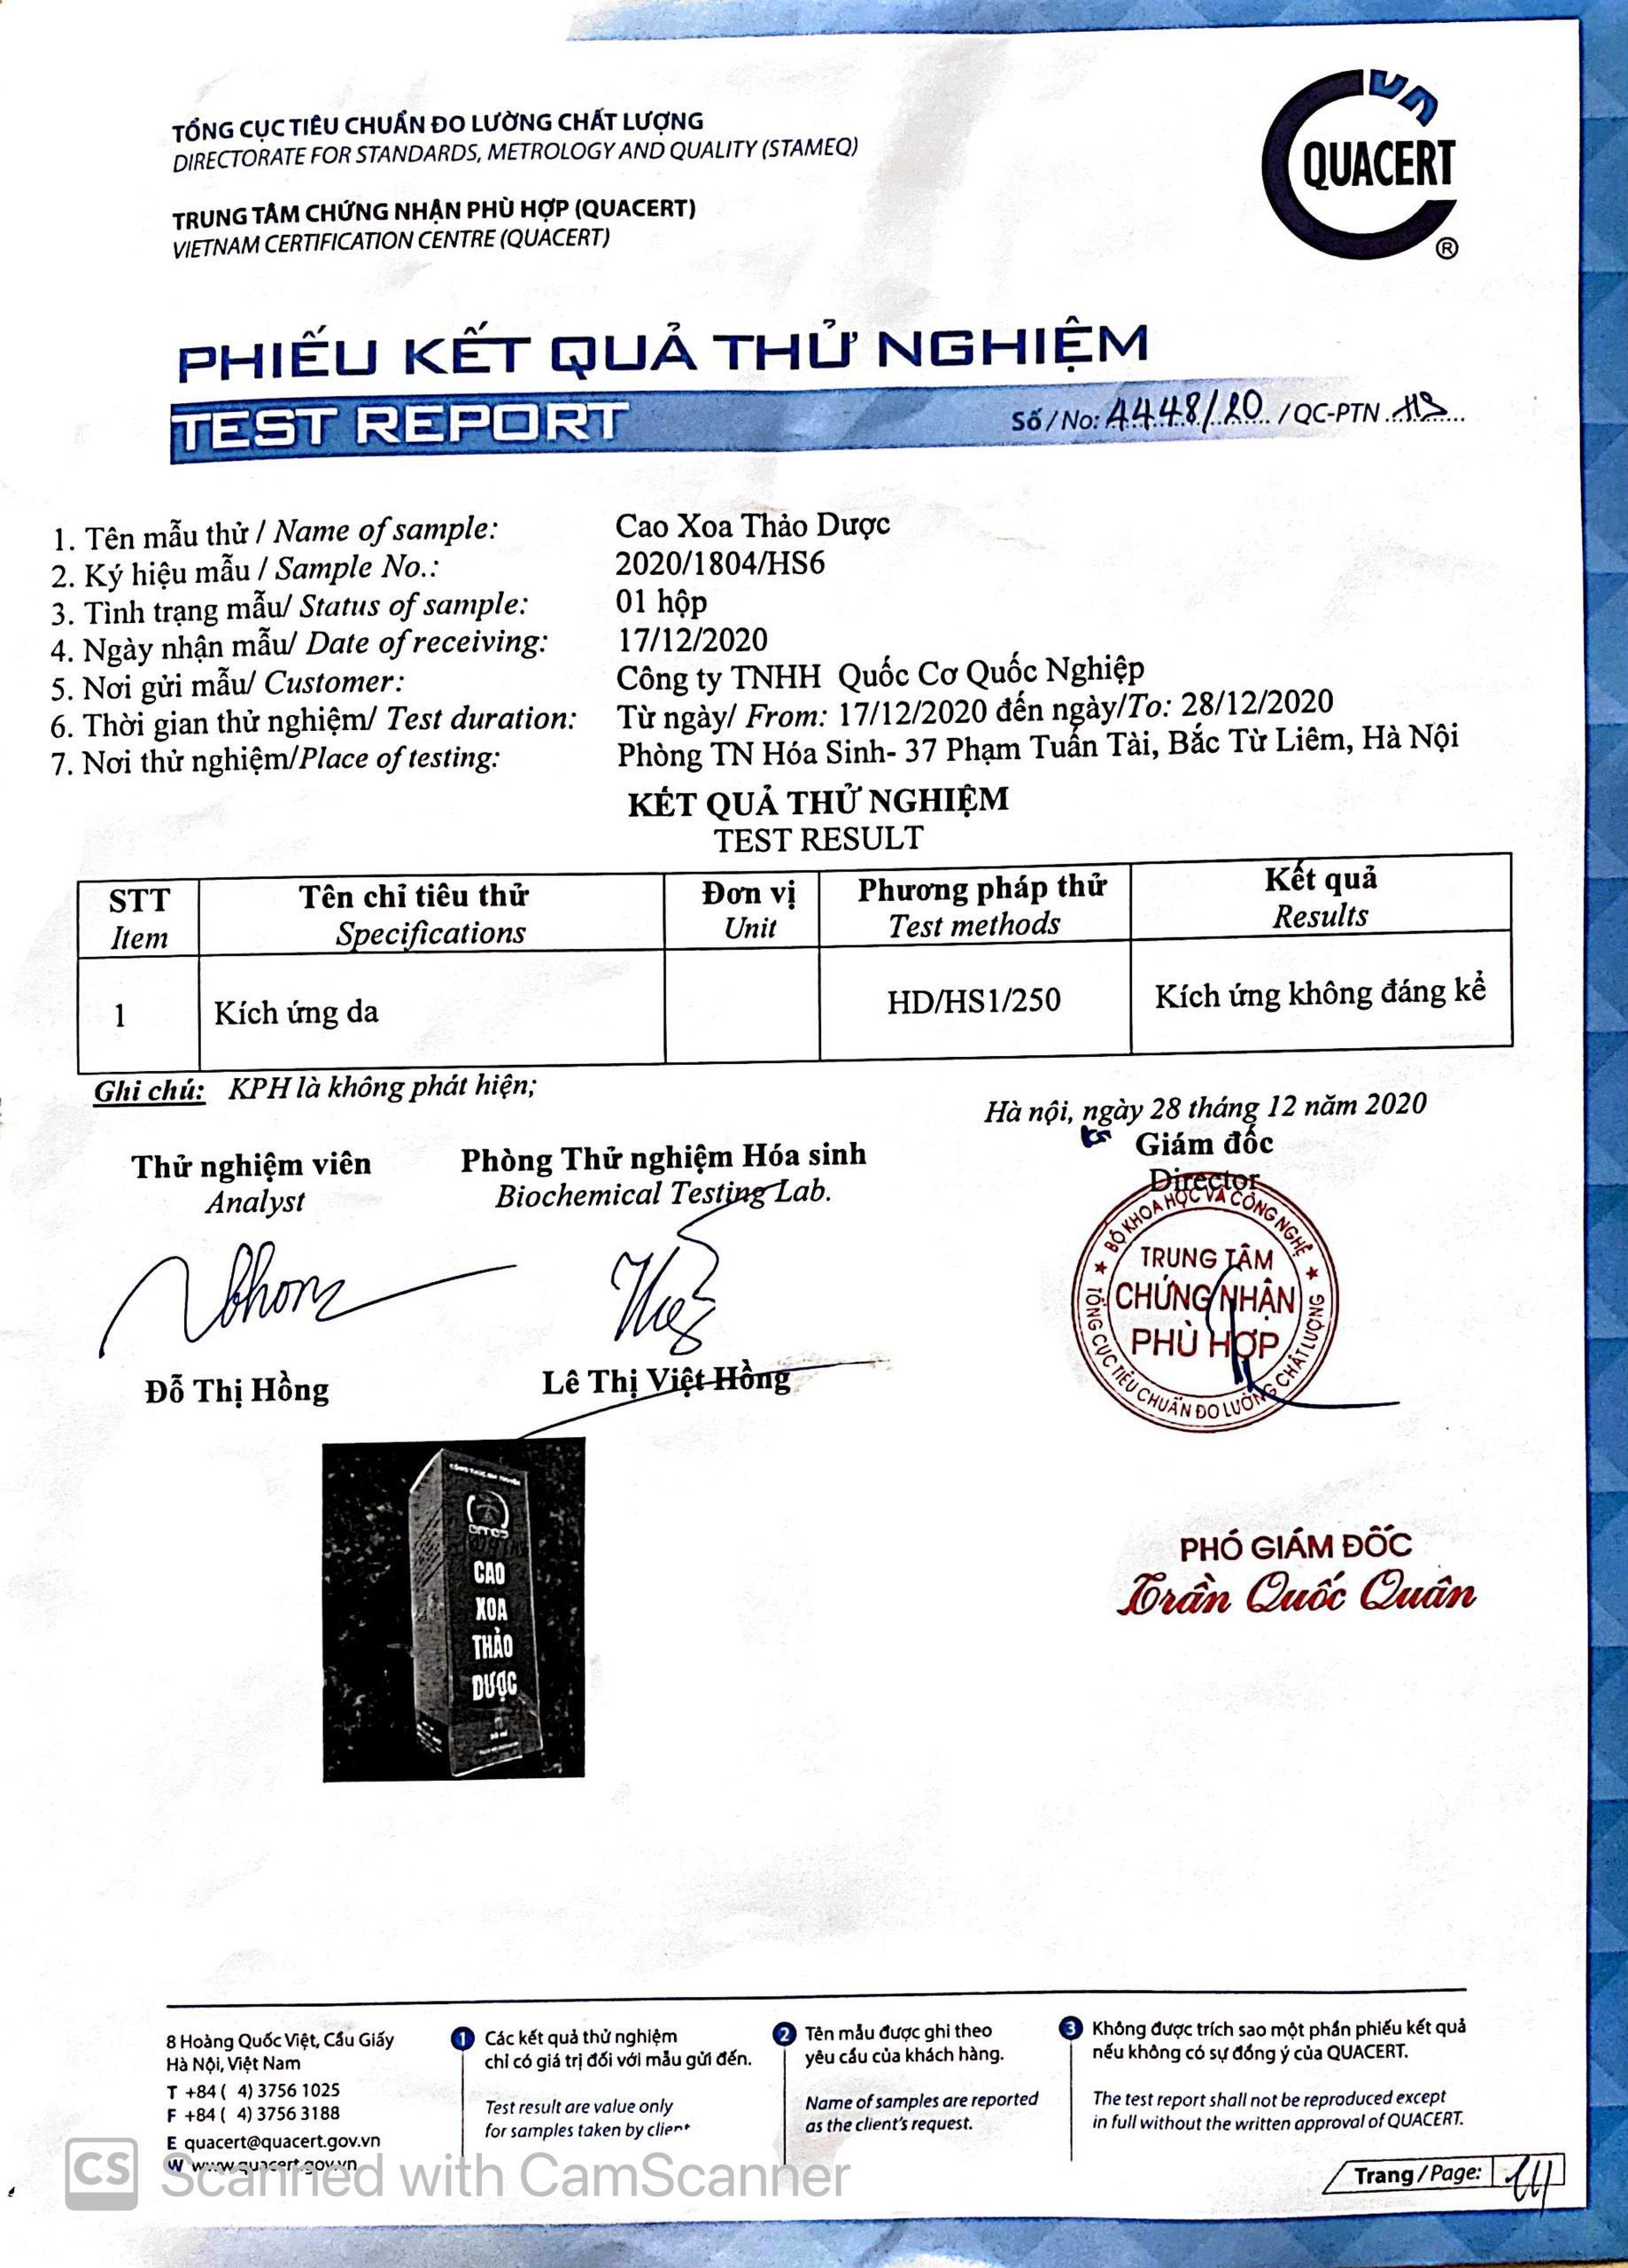 TỔNG CỤC TIÊU CHUẨN ĐO LƯỜNG CHẤT LƯỢNG
DIRECTORATE FOR STANDARDS, METROLOGY AND QUALITY (STAMEQ)
TRUNG TÂM CHỨNG NHẬN PHÙ HỢP (QUACERT)
VIETNAM CERTIFICATION CENTRE (QUACERT)
QUACERT
®
PHIẾU KẾT QUẢ THỬ NGHIỆM
TEST REPORT
Số / No: 4448/20 / QC-PTN HS
1. Tên mẫu thử / Name of sample: Cao Xoa Thảo Dược
2. Ký hiệu mẫu / Sample No.: 2020/1804/HS6
3. Tình trạng mẫu/ Status of sample: 01 hộp
4. Ngày nhận mẫu/ Date of receiving: 17/12/2020
5. Nơi gửi mẫu/ Customer: Công ty TNHH Quốc Cơ Quốc Nghiệp
6. Thời gian thử nghiệm/ Test duration: Từ ngày/ From: 17/12/2020 đến ngày/To: 28/12/2020
7. Nơi thử nghiệm/Place of testing: Phòng TN Hóa Sinh- 37 Phạm Tuấn Tài, Bắc Từ Liêm, Hà Nội
KẾT QUẢ THỬ NGHIỆM
TEST RESULT
STT Tên chỉ tiêu thử Đơn vị Phương pháp thử Kết quả
Item Specifications Unit Test methods Results
1 Kích ứng da HD/HS1/250 Kích ứng không đáng kể
Ghi chú: KPH là không phát hiện;
Hà nội, ngày 28 tháng 12 năm 2020
Thử nghiệm viên Phòng Thử nghiệm Hóa sinh Giám đốc
Analyst Biochemical Testing Lab. Director
BỘ KHOA HỌC VÀ CÔNG NGHỆ
TRUNG TÂM
CHỨNG NHẬN
PHÙ HỢP
TỔNG CỤC TIÊU CHUẨN ĐO LƯỜNG CHẤT LƯỢNG
Đỗ Thị Hồng Lê Thị Việt Hồng
CAO
XOA
THẢO
DƯỢC
PHÓ GIÁM ĐỐC
Trần Quốc Quân
8 Hoàng Quốc Việt, Cầu Giấy
Hà Nội, Việt Nam
T +84 ( 4) 3756 1025
F +84 ( 4) 3756 3188
E quacert@quacert.gov.vn
W www.quacert.gov.vn
1 Các kết quả thử nghiệm
chỉ có giá trị đối với mẫu gửi đến.
Test result are value only
for samples taken by client
2 Tên mẫu được ghi theo
yêu cầu của khách hàng.
Name of samples are reported
as the client's request.
3 Không được trích sao một phần phiếu kết quả
nếu không có sự đồng ý của QUACERT.
The test report shall not be reproduced except
in full without the written approval of QUACERT.
Trang / Page: 1/1
CS Scanned with CamScanner